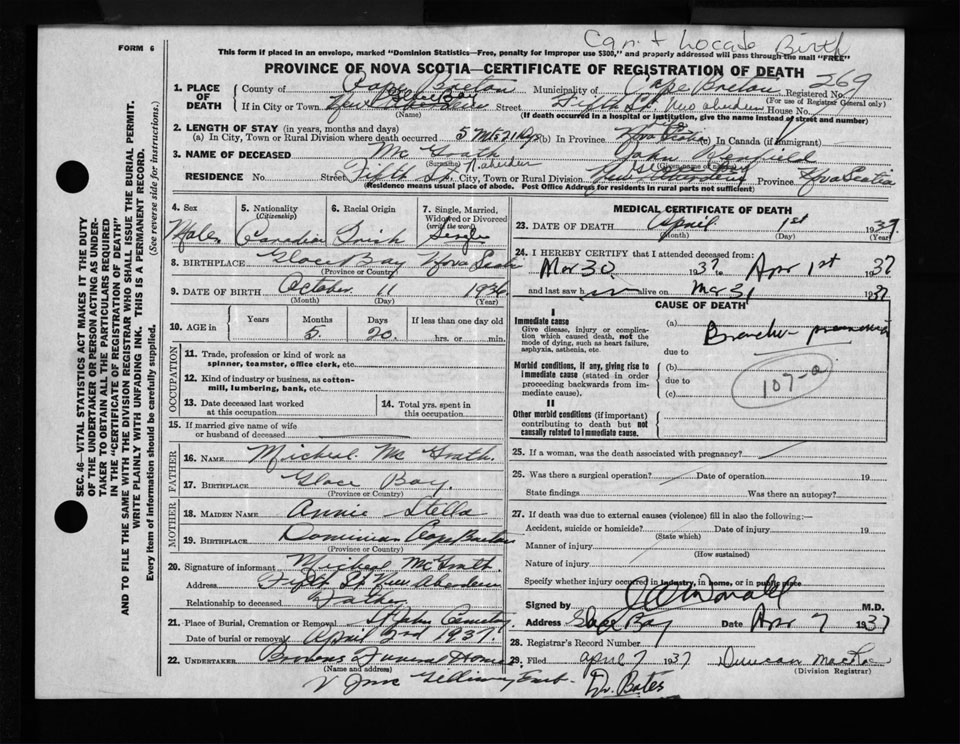 Can't Locate Birth
FORM 6
This form if placed in an envelope, marked "Dominion Statistics—Free, penalty for improper use $300," and properly addressed will pass through the mail "FREE"
PROVINCE OF NOVA SCOTIA—CERTIFICATE OF REGISTRATION OF DEATH
269
1. PLACE OF DEATH
County of Cape Breton Municipality of Cape Breton Registered No.
(For use of Registrar General only)
Glace Bay
If in City or Town New Aberdeen Street Fifth St. New Aberdeen House No.
(Name) (If death occurred in a hospital or institution, give the name instead of street and number)
2. LENGTH OF STAY (in years, months and days)
(a) In City, Town or Rural Division where death occurred 5 Mts 21 Dys (b) In Province (c) In Canada (if immigrant)
3. NAME OF DECEASED Mc Grath John
(Surname)
RESIDENCE No. Street Fifth St. N. Aberdeen City, Town or Rural Division New Aberdeen Province Nova Scotia
(Residence means usual place of abode. Post Office Address for residents in rural parts not sufficient)
4. Sex
Male
5. Nationality
(Citizenship)
Canadian
6. Racial Origin
Irish
7. Single, Married, Widowed or Divorced
(write the word)
Single
8. BIRTHPLACE Glace Bay Nova Scotia
(Province or Country)
9. DATE OF BIRTH October 11 1936
(Month) (Day) (Year)
10. AGE in Years Months Days If less than one day old
5 20 hrs. or min.
OCCUPATION
11. Trade, profession or kind of work as spinner, teamster, office clerk, etc.
12. Kind of industry or business, as cotton-mill, lumbering, bank, etc.
13. Date deceased last worked at this occupation
14. Total yrs. spent in this occupation
15. If married give name of wife or husband of deceased
FATHER
16. NAME Micheal Mc Grath
17. BIRTHPLACE Glace Bay
(Province or Country)
MOTHER
18. MAIDEN NAME Annie Stella
19. BIRTHPLACE Dominion Cape Breton
(Province or Country)
20. Signature of informant Micheal McGrath
Address Fifth St New Aberdeen
Relationship to deceased Father
21. Place of Burial, Cremation or Removal St John Cemetery
Date of burial or removal April 2nd 1937
22. UNDERTAKER Browns Funeral Home
(Name and address)
MEDICAL CERTIFICATE OF DEATH
23. DATE OF DEATH April 1st 1937
(Month) (Day) (Year)
24. I HEREBY CERTIFY that I attended deceased from:
Mar 30 1937 to Apr 1st 1937
and last saw him alive on Mar 31 1937
CAUSE OF DEATH
I
Immediate cause
Give disease, injury or complication which caused death, not the mode of dying, such as heart failure, asphyxia, asthenia, etc.
(a) Broncho pneumonia
due to
Morbid conditions, if any, giving rise to immediate cause (stated in order proceeding backwards from immediate cause)
(b)
due to
(c)
107-a
II
Other morbid conditions (if important) contributing to death but not causally related to immediate cause.
25. If a woman, was the death associated with pregnancy?
26. Was there a surgical operation? Date of operation 19
State findings Was there an autopsy?
27. If death was due to external causes (violence) fill in also the following:—
Accident, suicide or homicide? Date of injury 19
(State which)
Manner of injury
(How sustained)
Nature of injury
Specify whether injury occurred in industry, in home, or in public place
Signed by McDonald M.D.
Address Glace Bay Date Apr 7 1937
28. Registrar's Record Number
29. Filed april 7 1937 Duncan
(Division Registrar)
Dr. Bates
SEC. 46—VITAL STATISTICS ACT MAKES IT THE DUTY
OF THE UNDERTAKER OR PERSON ACTING AS UNDER-
TAKER TO OBTAIN ALL THE PARTICULARS REQUIRED
IN THE "CERTIFICATE OF REGISTRATION OF DEATH"
AND TO FILE THE SAME WITH THE DIVISION REGISTRAR WHO SHALL ISSUE THE BURIAL PERMIT.
WRITE PLAINLY WITH UNFADING INK. THIS IS A PERMANENT RECORD.
Every item of information should be carefully supplied. (See reverse side for instructions.)